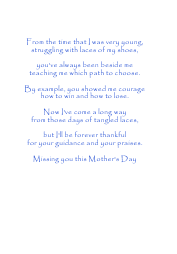 From the time that I was very young,
struggling with laces of my shoes,
you've always been beside me
teaching me which path to choose.
By example, you showed me courage
how to win and how to lose.
Now I've come a long way
from those days of tangled laces,
but I'll be forever thankful
for your guidance and your praises.
Missing you this Mother's Day